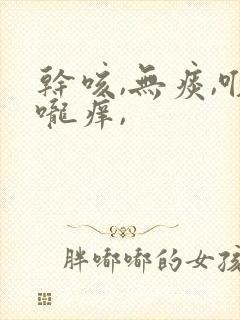 幹咳,無痰,喉
嚨痒,
胖嘟嘟的女孩